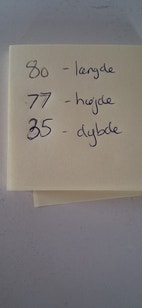 80 - længde
77 - højde
35 - dybde